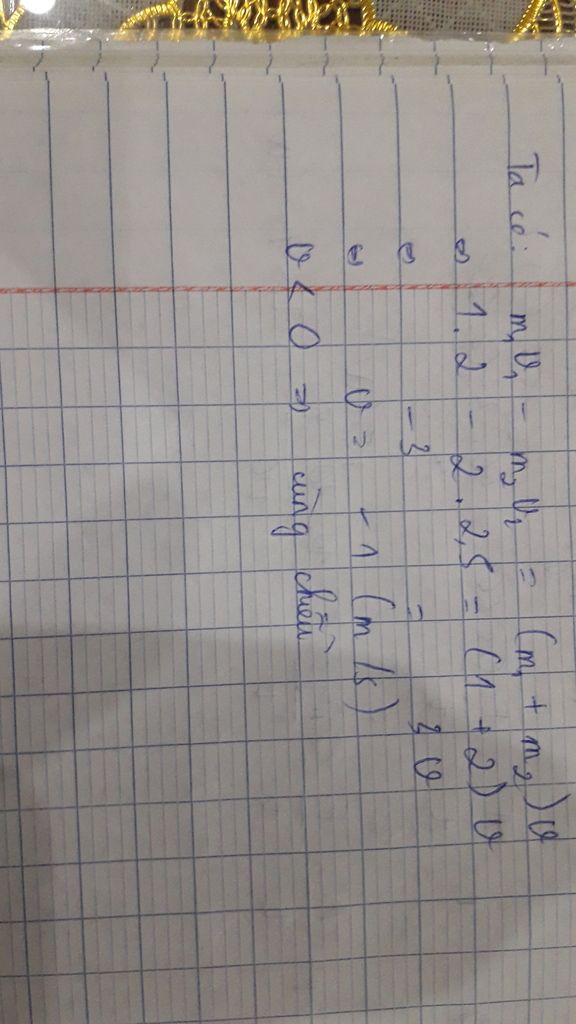 Ta có: m₁v₁ - m₂v₂ = (m₁ + m₂)v
⇔ 1.2 - 2.2,5 = (1 + 2)v
⇔ -3 = 3v
⇔ v = -1 (m/s)
v < 0 ⇒ cùng chiều